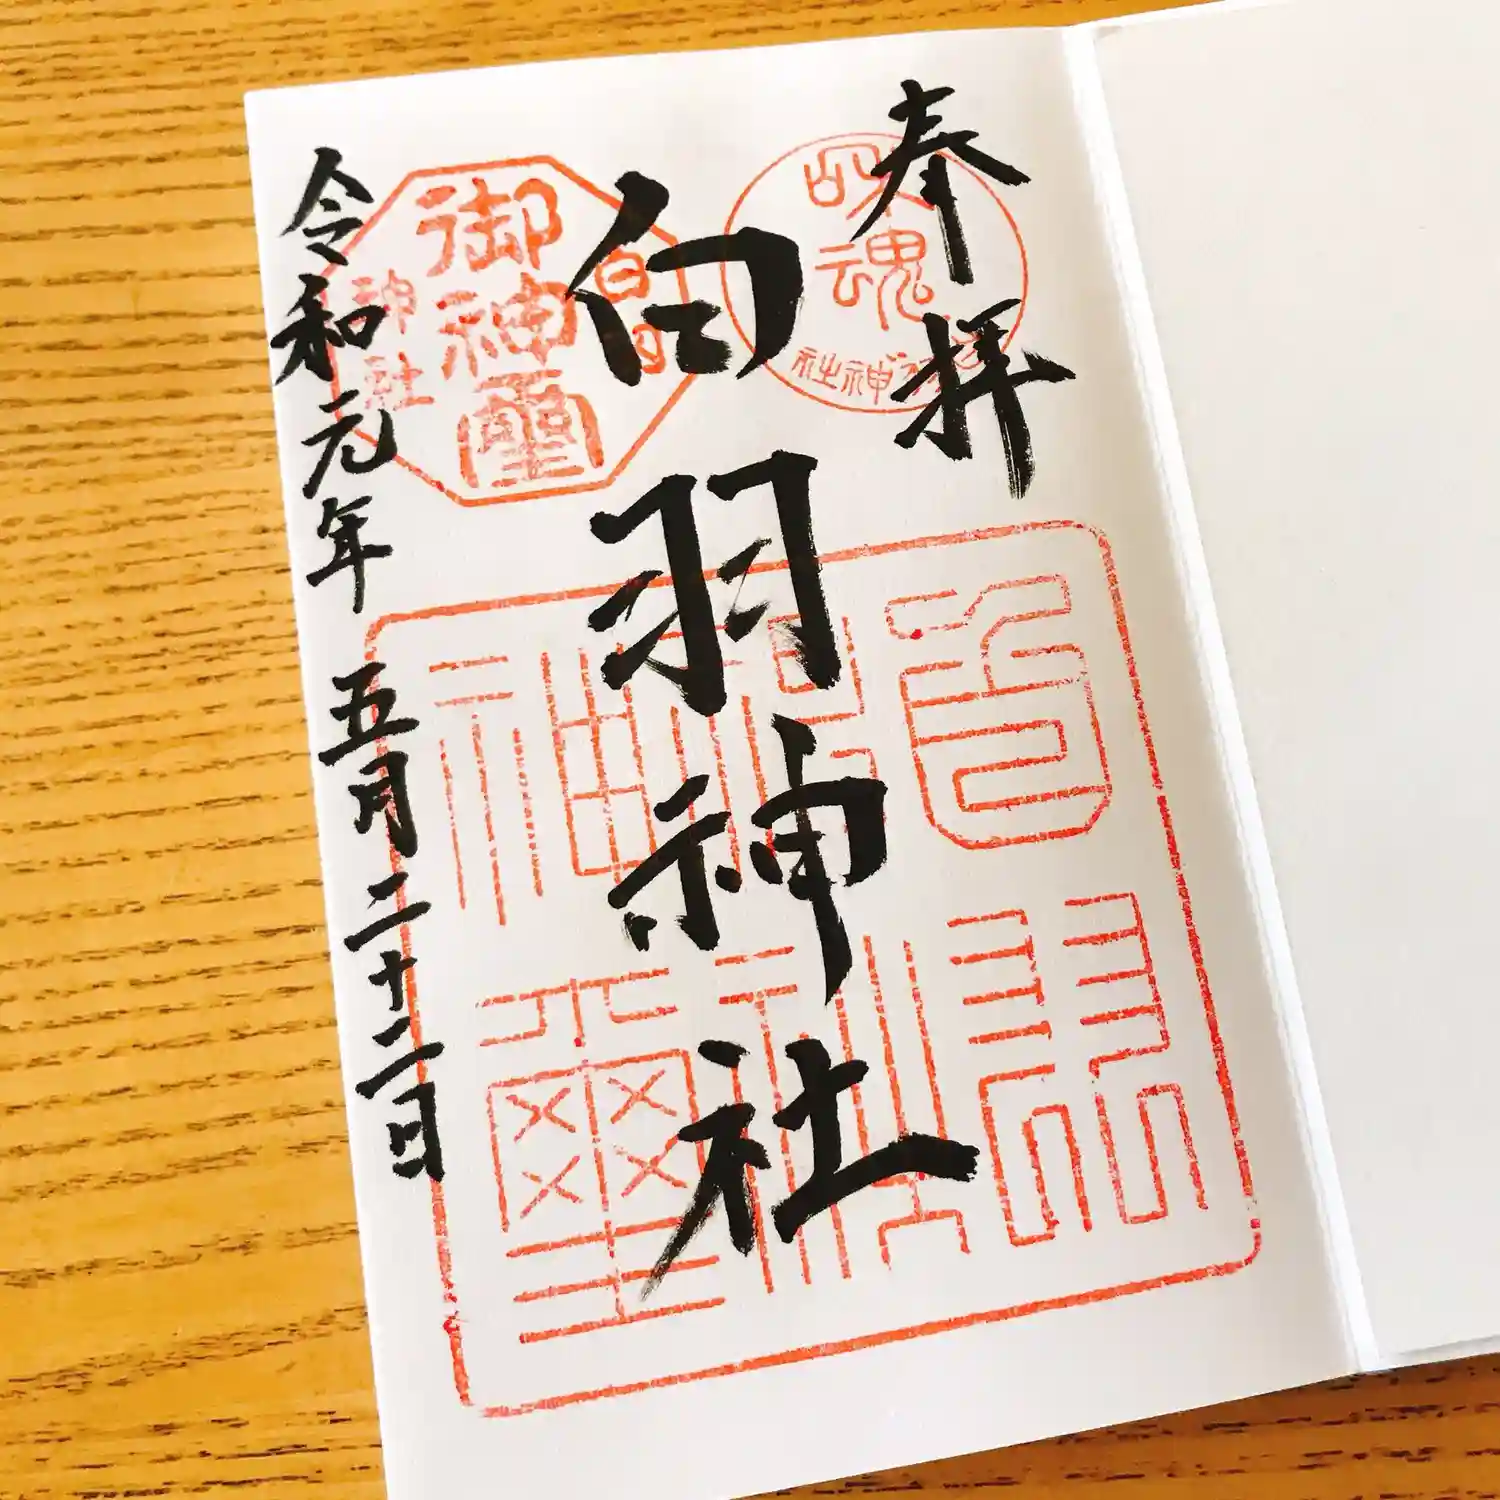 奉拝
白羽神社
令和元年 五月二十二日
御神璽
神社
魂
神社